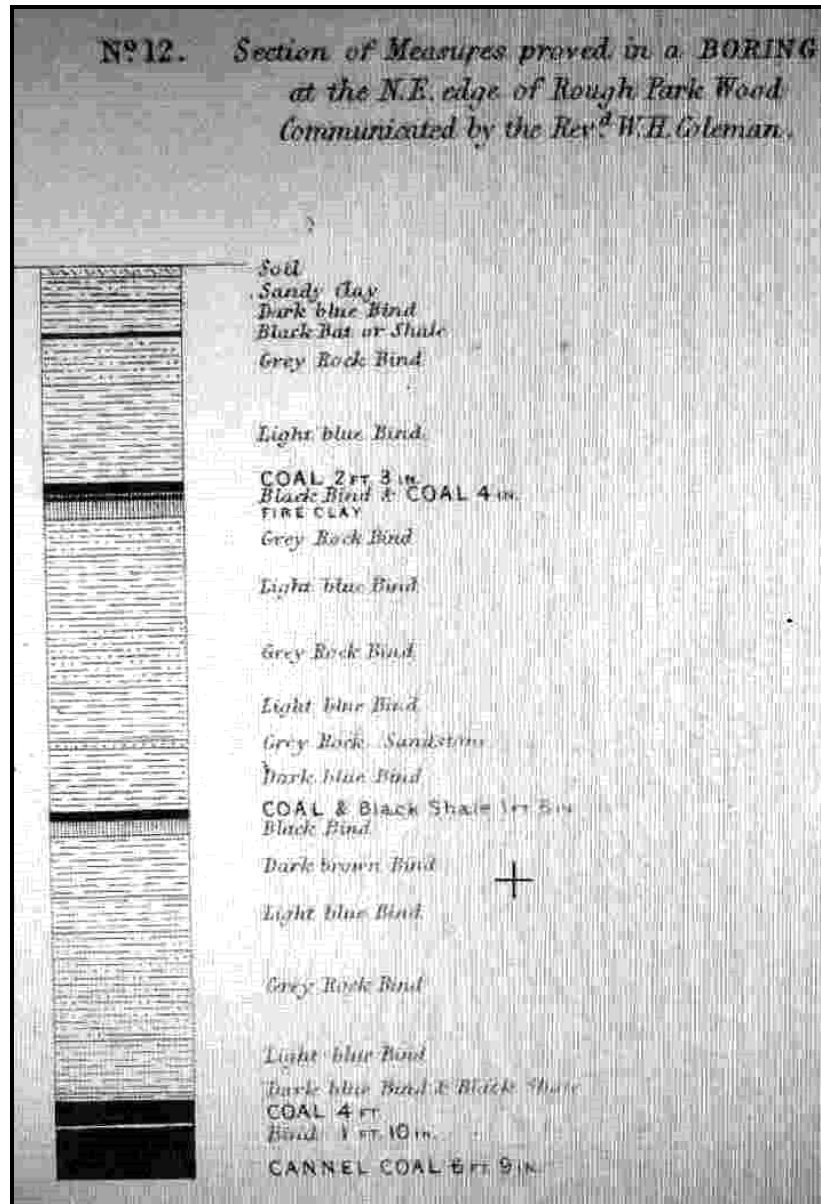 Nº 12. Section of Measures proved in a BORING
at the N.E. edge of Rough Park Wood
Communicated by the Revᵈ W.H. Coleman.
Soil
Sandy Clay
Dark blue Bind
Black Bat or Shale
Grey Rock Bind
Light blue Bind
COAL 2 FT 3 IN.
Black Bind & COAL 4 IN.
FIRE CLAY
Grey Rock Bind
Light blue Bind
Grey Rock Bind
Light blue Bind
Grey Rock Sandstone
Dark blue Bind
COAL & Black Shale 1 FT IN
Black Bind
Dark brown Bind
Light blue Bind
Grey Rock Bind
Light blue Bind
Dark blue Bind & Black Shale
COAL 4 FT
Bind 1 FT. 10 IN.
CANNEL COAL 6 FT 9 IN.